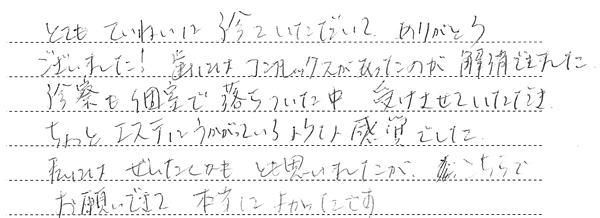 とても ていねいに 診ていただいて ありがとう
ございました! 歯には コンプレックスがあったのが 解消できました
診察も 個室で 落ちついた中 受けさせていただき
ちょっと エステにうかがっているような 感覚でした
私には ぜいたくかも とも思いましたが、こちらで
お願いできて 本当に よかったです